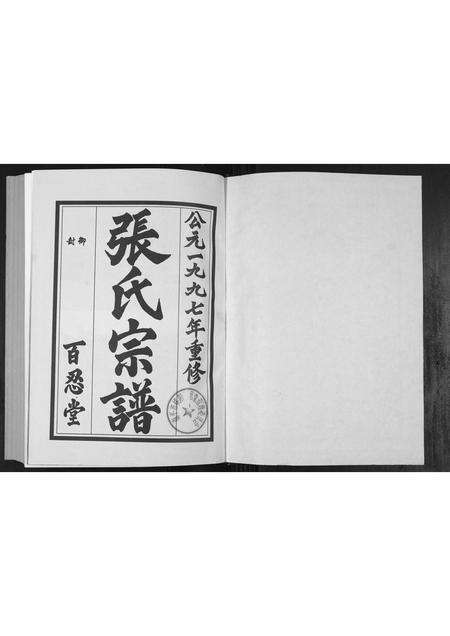 公元一九九七年重修
張氏宗譜
御封
百忍堂